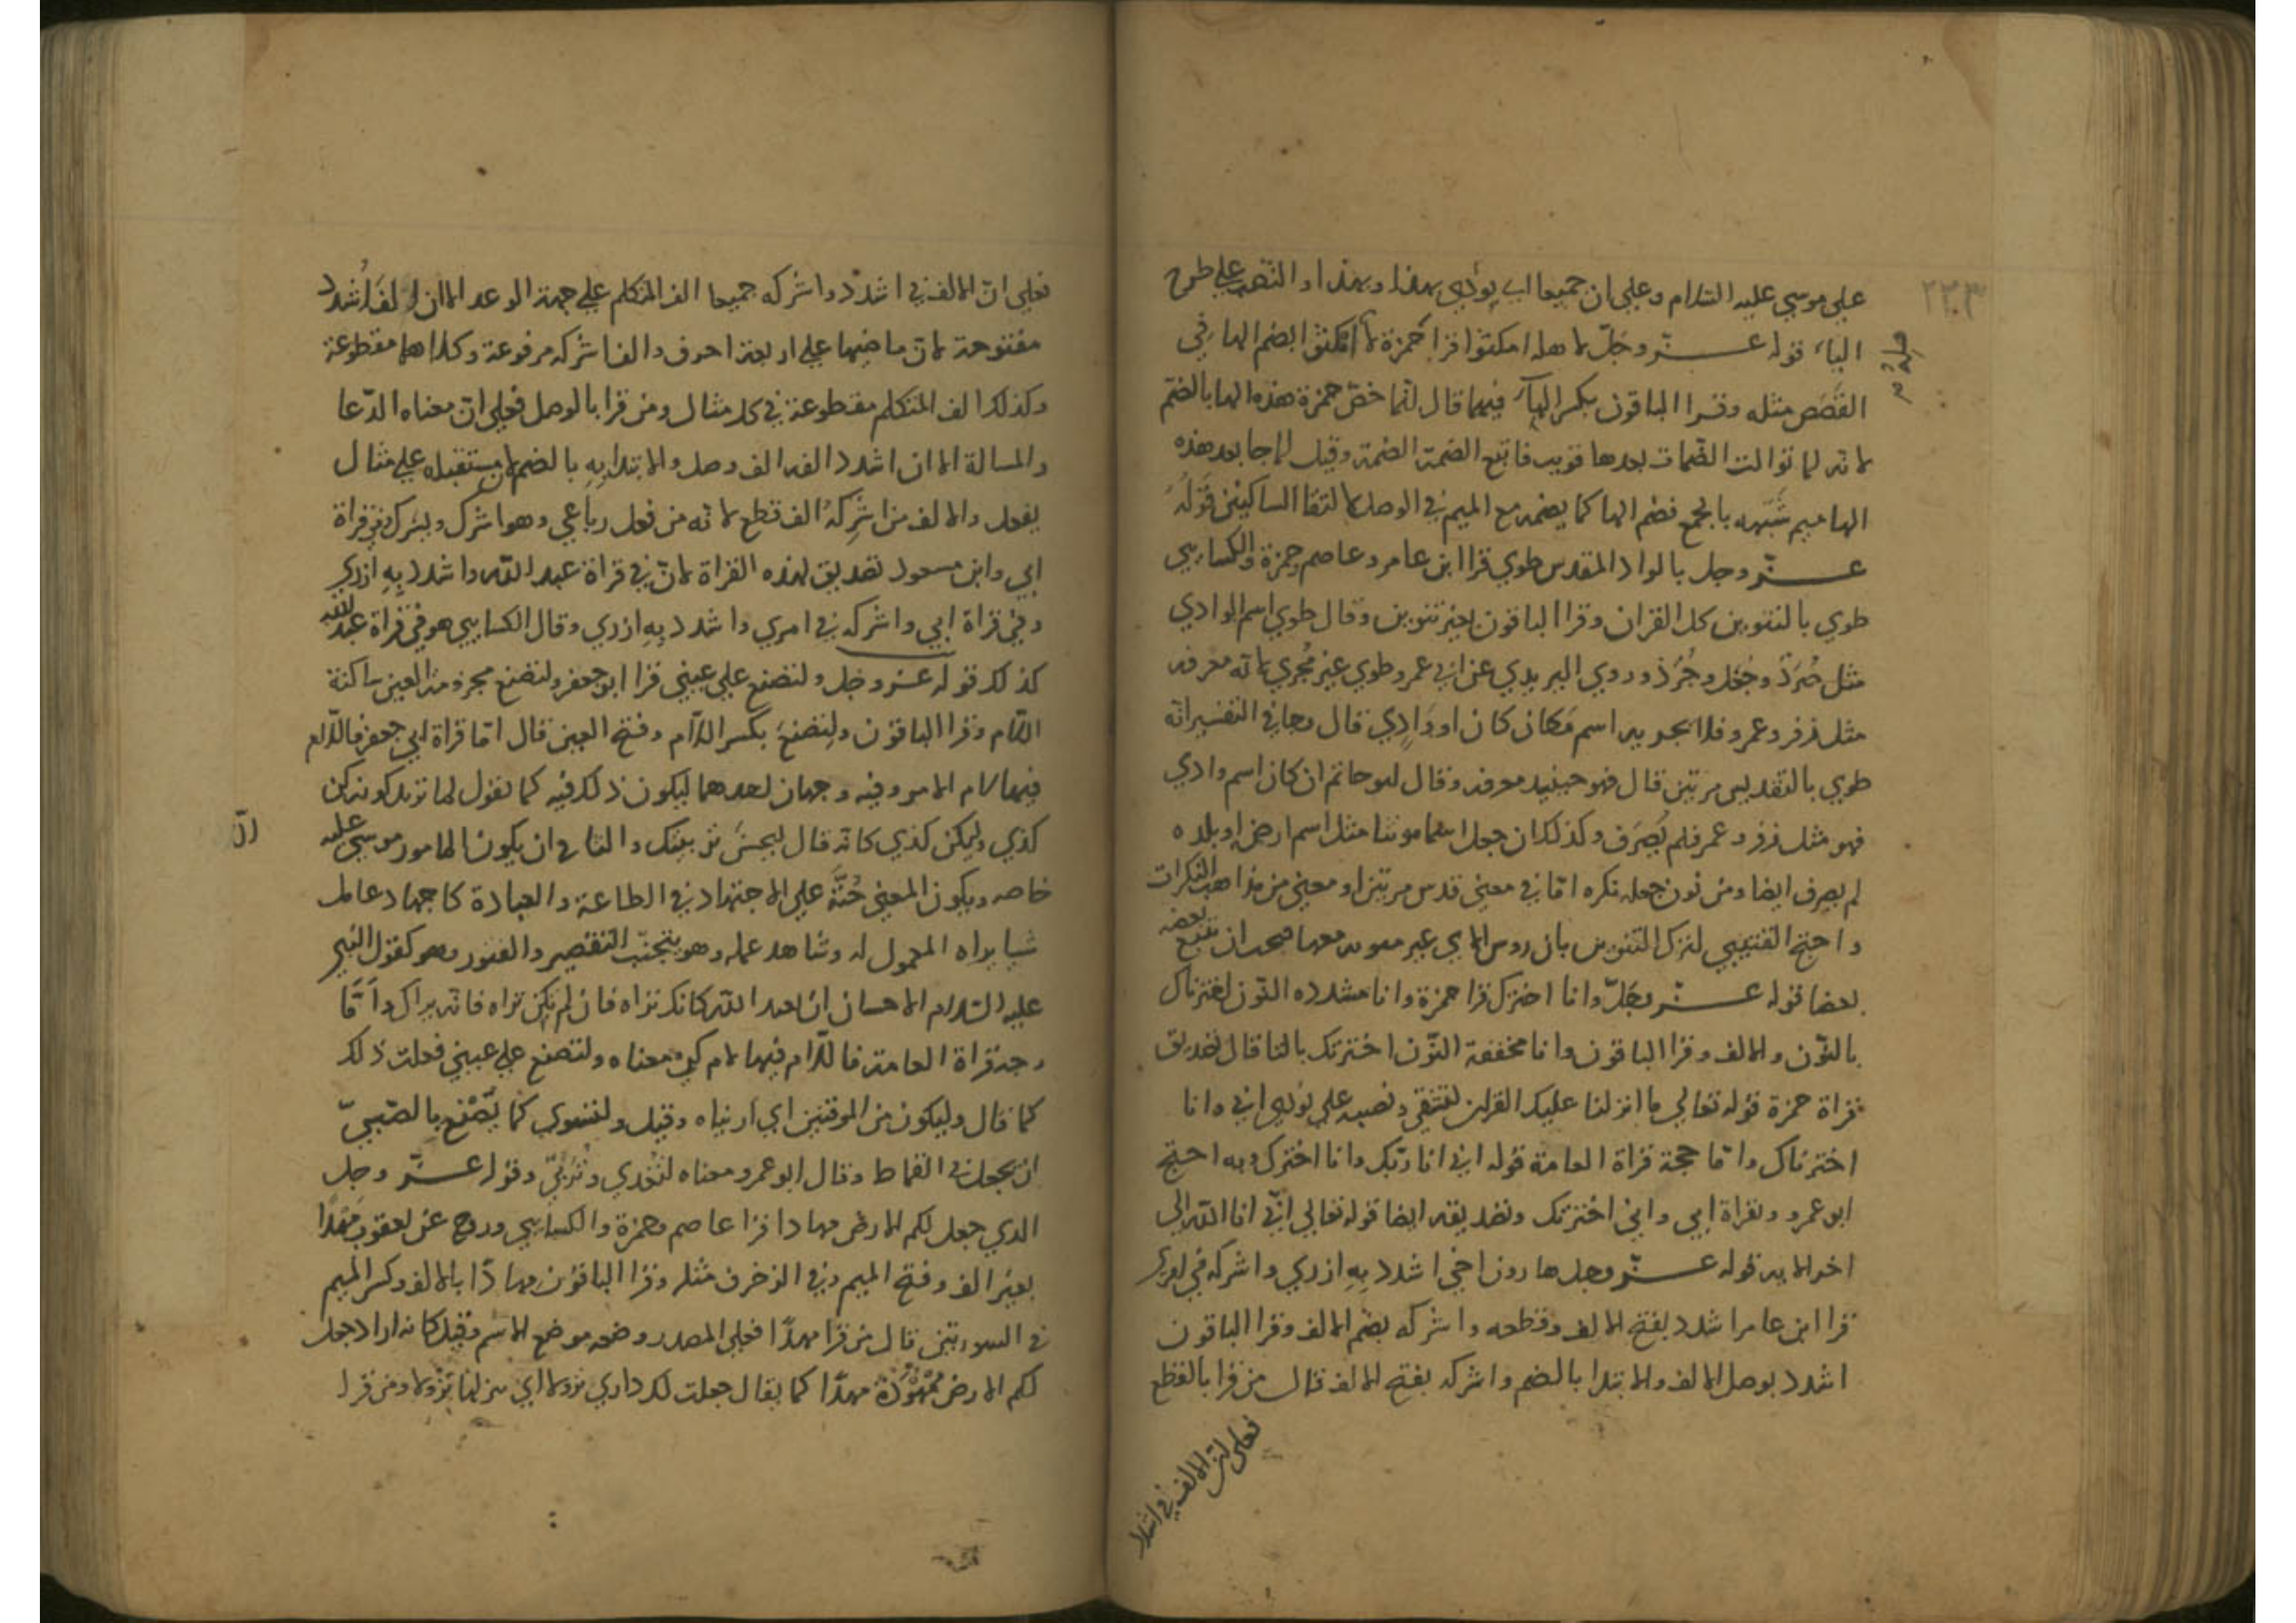 ٢٢٣
علي موسي عليه السلام وعلي ان جميعا اي نودي بهذا وبهذا والنصب علي طرح
الباء قوله عــــز وجل لاهله امكثوا قرا حمزة لاهله امكثوا بضم الها وفي
القصص مثله وقرا الباقون بكسر الهآء فيهما قال انما خص حمزة هذه الها بالضم
لانه لما توالت الضمات بعدها قريب فاتبع الضمة الضمة وقيل لما جا بعد هذه
الها ميم شبهه بالجمع فضم الها كما يضمه مع الميم في الوصل لالتقا الساكنين قوله
عــــز وجل بالواد المقدس طوي قرا ابن عامر وعاصم وحمزة والكسايي
طوي بالتنوين كل القران وقرا الباقون بغير تنوين وقال طوي اسم الوادي
مثل صُرَد وجُعَل وجُرَذ وروي اليزيدي عن ابي عمرو طوي غير مُجري لانه معرفه
مثل زفر وعمر وفلا يجريه اسم مكان كان او وَادِي قال وجا في التفسير انه
طوي بالتقديس مرتين قال فهو حينيذ معرفه وقال ابو حاتم ان كان اسم وادي
فهو مثل زفر وعمر فلم يُصرَف وكذلك ان جعل اسما مونثا مثل اسم ارض او بلده
لم يصرف ايضا ومن نون جعله نكره اما في معني قدس مرتين او معني من مذاهب النكرات
واحتج القتيبي لترك التنوين بان روس الاي غير منونه معها فيجب ان يتبع بعضه
بعضا قوله عــــز وجل وانا اخترتك قرا حمزة وانا مشدده النون اخترناك
بالنون والالف وقرا الباقون وانا مخففة النون اخترتك بالتا قال تصديق
قراة حمزة قوله تعالي ما انزلنا عليك القران لتشقي ونصبه علي نودي اني وانا
اخترناك واما حجة قراة العامة قوله اني انا ربك وانا اخترتك وبه احتج
ابو عمرو وبقراة ابي واني اخترتك وتصديقه ايضا قوله تعالي انني انا الله الي
اخر الايه قوله عــــز وجل هارون اخي اشدد بِهِ ازري واشركه في امري
قرا ابن عامر اشدد بفتح الالف وقطعه واشركه بضم الالف وقرا الباقون
اشدد بوصل الالف والابتدا بالضم واشركه بفتح الالف قال من قرا بالقطع
فعلي ان الالف في اشدد
فعلي ان الالف في اشدد واشركه جميعا الف المتكلم علي جهة الوعد الا ان الف اُشدد
مفتوحة لان ماضيها علي اربعة احرف والف اشركه مرفوعة وكلاهما مقطوعة
وكذلك الف المتكلم مقطوعة في كل مثال ومن قرا بالوصل فعلي ان معناه الدعا
والمسالة الا ان اشدد الفه الف وصل والابتدا بِهِ بالضم لان مستقبله علي مثال
يفعل والالف من اشرِكه الف قطع لانه من فعل رباعي وهو اشرك ويشرك وفي قراة
ابي وابن مسعود تصديق لهذه القراة لان في قراة عبد الله واشدد بِهِ ازري
وفي قراة ابي واشركه في امري واشدد بِهِ ازري وقال الكسايي هو في قراة عبد الله
كذلك قوله عــز وجل ولتصنع علي عيني قرا ابو جعفر ولتصنع مجزومة العين ساكنة
اللام وقرا الباقون ولِتصنعَ بكسر اللام وفتح العين قال اما قراة ابي جعفر فاللام
فيها لام الامر وفيه وجهان احدهما ليكون ذلك فيه كما تقول لها تزيدك ونزكن
كذي وليكن كذي كانه قال ليحسَن تربيتك والثاني ان يكون المامور موسي عليه
خاصه ويكون المعني حُثَّهُ علي الاجتهاد في الطاعة والعبادة كاجهاد عامل
شيا يراه المعمول له وشاهد عمله وهو يتجنب التقصير والفتور وهو كقول النبي
عليه السلام الاحسان ان تعبد الله كانك تراه فان لم تكن تراه فانه يراك واَمّا
وجه قراة العامة فاللام فيها لام كي معناه ولتصنع علي عيني فعلت ذلك
كما قال وليكون من الموقنين اي اريناه وقيل ولتسوي كما يُصْنع بالصبيّ
ان يجعل في القماط وقال ابو عمرو معناه لتغذي وتُربّي وقوله عــــز وجل
الذي جعل لكم الارض مهادا قرا عاصم وحمزة والكسايي وروح عن يعقوب مَهدًا
بغير الف وفتح الميم وفي الزخرف مثله وقرا الباقون مهادًا بالالف وكسر الميم
في السورتين قال من قرا مهدًا فعلي المصدر وضعه موضع الاسم وقيل كانه اراد جعل
لكم الارض ممهُودَة مهدًا كما يقال جعلت لك داري نزولا اي منزلا تزولا ومن قرا